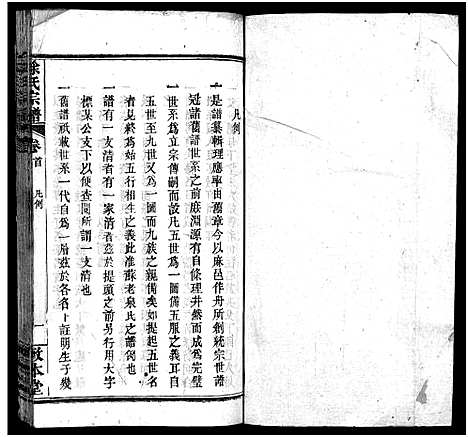 凡例
一是譜纂輯理應率由舊章今以麻邑作舟所創統宗世譜
冠諸舊譜世系之前庶淵源有自條理井然而成爲完璧
一世系爲立宗傳嗣而設凡五世爲一圖備五服之義耳自
五世至九世又爲一圖而九族之親備矣如提起五世名
者見終爲始五行相生之義此准蘇老泉氏之譜例也
一譜有一支清者有一家清者茲於提頭之前另行用大字
標某公支下以便查閱所謂一支清也
一舊譜祇載世系一代自爲一層茲於各名下註明生子幾
徐氏宗譜
卷首
凡例
一
敦本堂